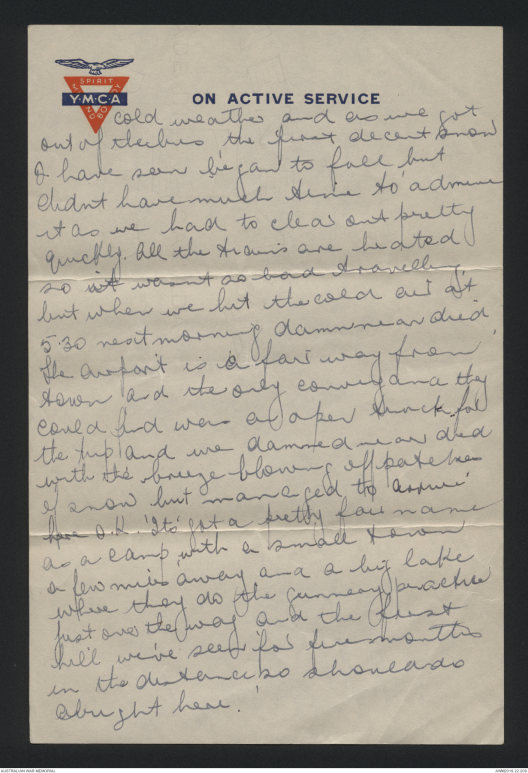 SPIRIT
Y·M·C·A
MIND
BODY
ON ACTIVE SERVICE
cold weather and as we got
out of the bus the first decent snow
I have seen began to fall but
didnt have much time to admire
it as we had to clear out pretty
quickly. All the trains are heated
so it wasnt so bad travelling
but when we hit the cold air at
5.30 next morning damn near died.
The airport is a fair way from
town and the only conveyance they
could find was a open truck for
the trip and we damned near died
with the breeze blowing off patches
of snow but managed to arrive
here O.K. Its got a pretty fair name
as a camp with a small town
a few miles away and a big lake
where they do the gunnery practice
just over the way and the first
hill we've seen for five months
in the distance so should do
alright here.
AUSTRALIAN WAR MEMORIAL